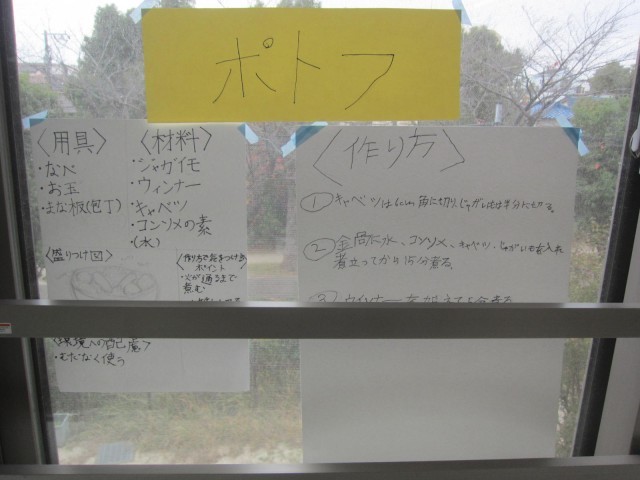 ポトフ
〈用具〉
・なべ
・お玉
・まな板(包丁)
〈材料〉
・ジャガイモ
・ウィンナー
・キャベツ
・コンソメの素
(水)
〈盛りつけ図〉
〈作り方で気をつける
ポイント〉
・火が通るまで
煮む
〈環境への配慮〉
・むだなく使う
〈作り方〉
① キャベツは6cm角に切り、じゃがいもは半分に切る。
② 全局に水、コンソメ、キャベツ・じゃがいもを入れ
煮立ってから15分煮る。
③ ウインナーを加えて5分煮る